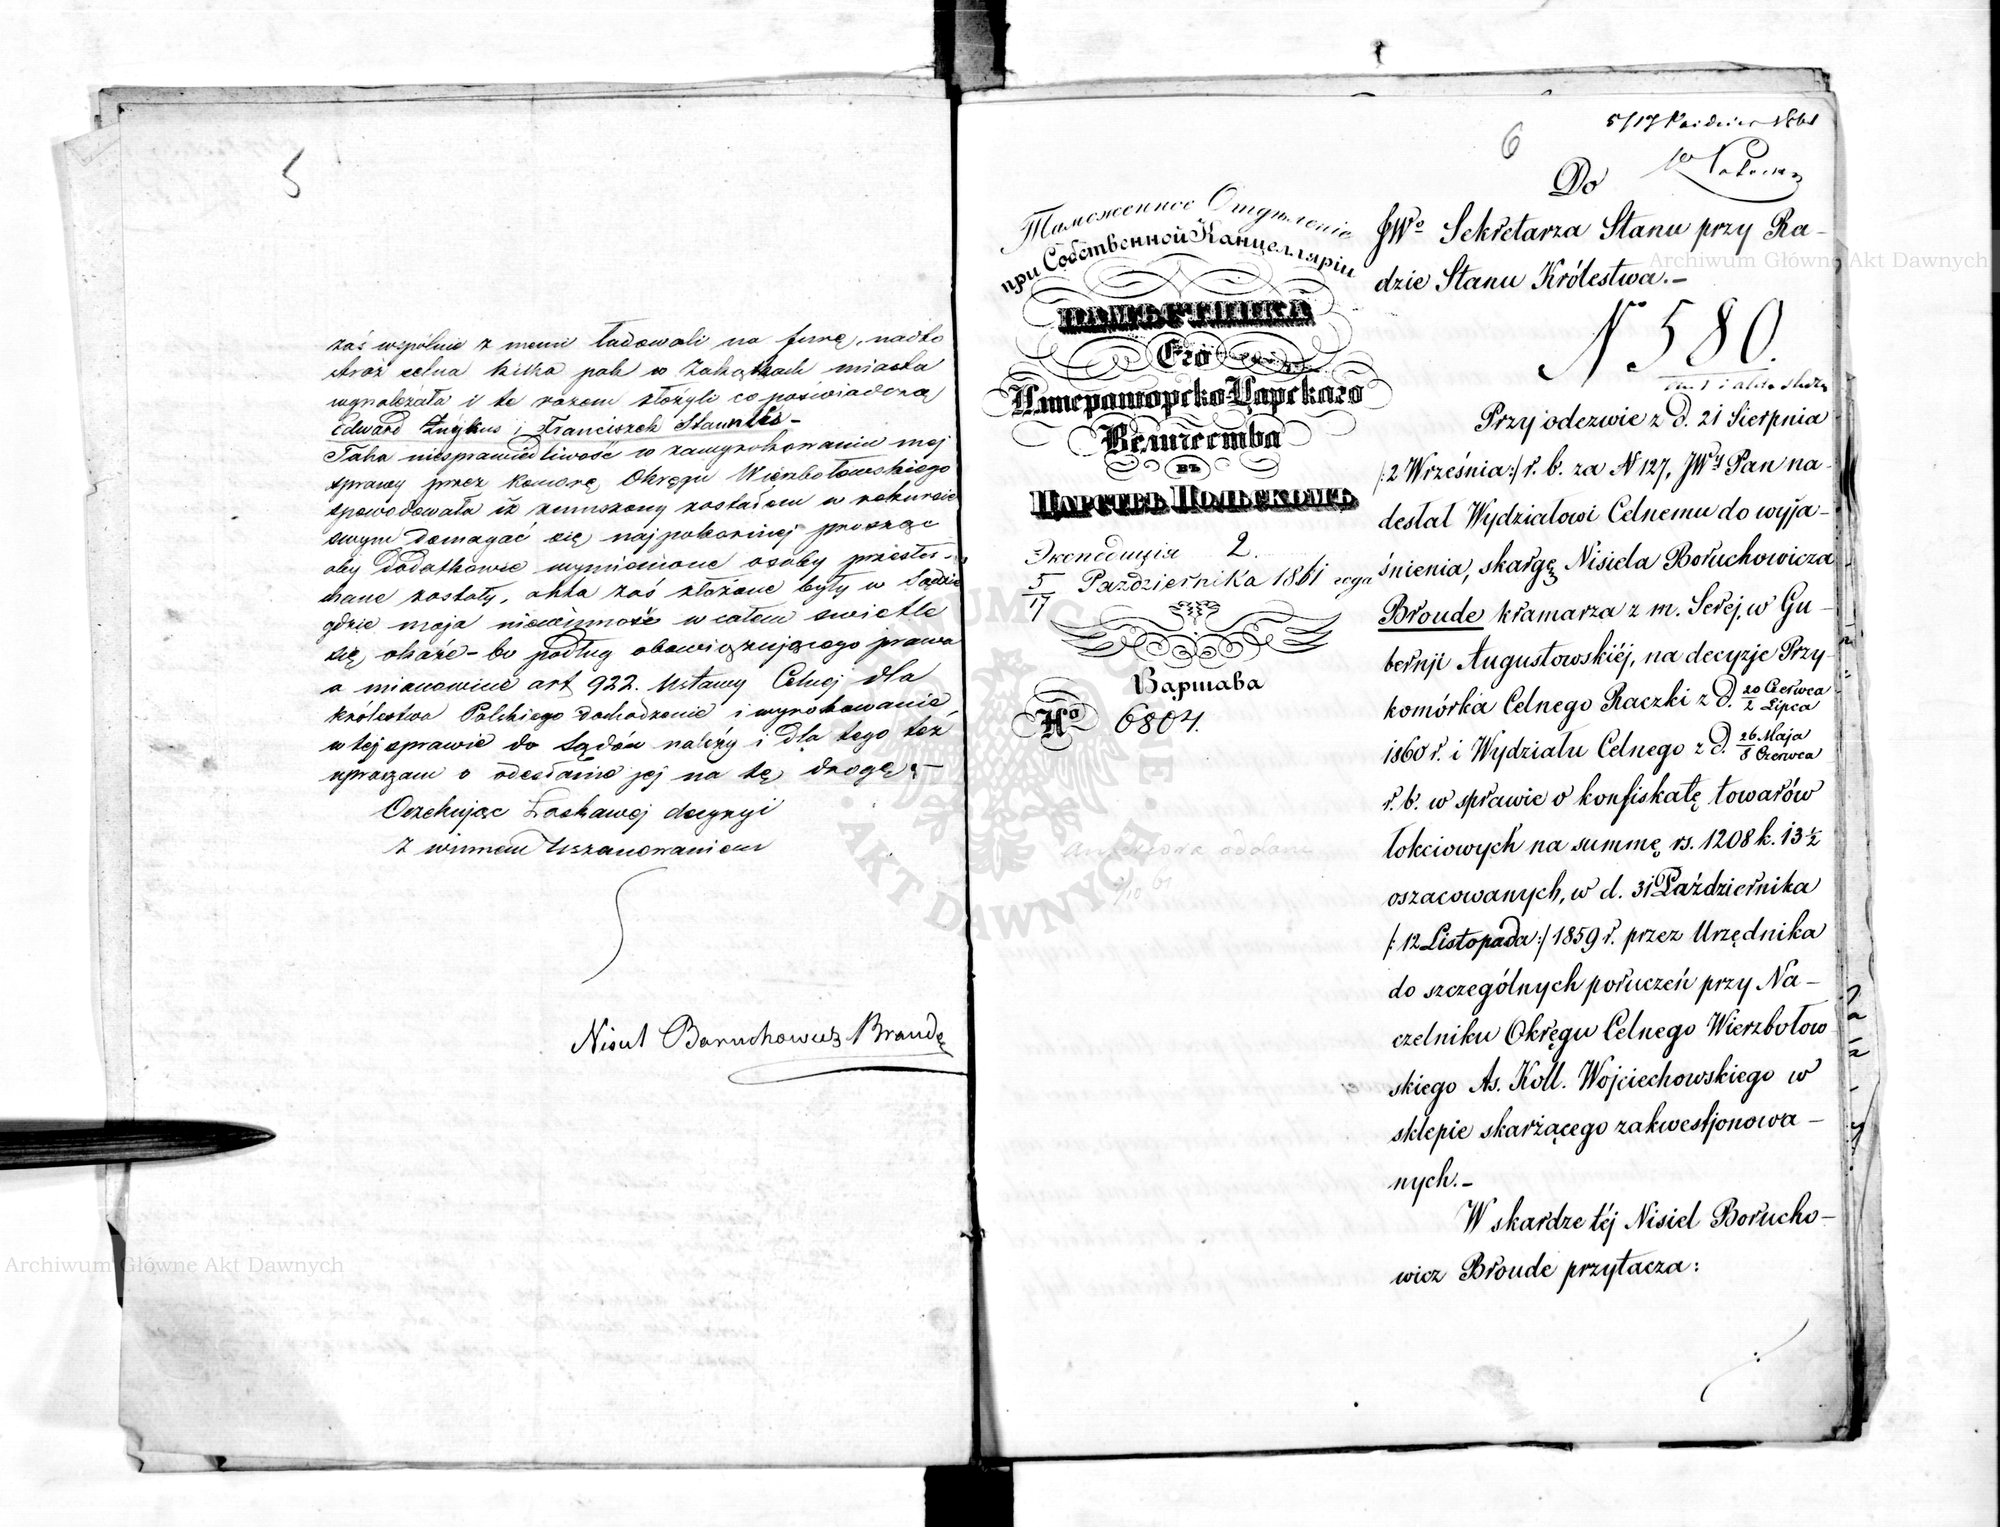 5
zaś wspólnie z memi ładowali na furę, nadto
straż celna kilka pak w zakątkach miasta
wynalazła i te razem złożyli co poświadczą
Edward i Franciszek
Taka niesprawiedliwość w zawyrokowaniu mej
sprawy przez Komorę Okręgu Wierzbołowskiego
spowodowała iż zmuszony zostałem w rekursie
swym domagać się najpokorniej prosząc
aby dodatkowie wymienione osoby przesłu-
chane zostały, akta zaś złożone były w Sądzie
gdzie moja niewinność w całem świetle
się okáże – bo podług obowiązującego prawa
a mianowicie art 922. Ustawy Celnej dla
królestwa Polskiego dochodzenie i wyrokowanie
w tej sprawie do Sądów należy i dla tego też
upraszam o odesłanie jej na tę drogę. –
Oczekując Łaskawej decyzyi
Z winnem Uszanowaniem
Nisel Boruchowicz Braudę
6
5/17 Październ 1861
Do
JWo Sekretarza Stanu przy Ra-
dzie Stanu Królestwa. –
N 580.
Таможенное Отдѣленіе
при Собственной Канцелляріи
НАМѢСТНИКА
Его
Императорско Царскаго
Величества
въ
Царствѣ Польскомъ
Экспедиція 2.
5/17 Października 1861 года
Варшава
No 6804.
Przy odezwie z d. 21 Sierpnia
/:2 Września:/ r. b. za N 127, JWy Pan na-
desłał Wydziałowi Celnemu do wyja-
śnienia, skargę Nisiela Boruchowicza
Broude kramarza z m. Serej, w Gu-
bernji Augustowskiéj, na decyzje Przy-
komórka Celnego Raczki z d. 20 Czerwca / 2 Lipca
1860 r. i Wydziału Celnego z d. 26 Maja / 8 Czerwca
r. b. w sprawie o konfiskatę towarów
łokciowych na summę rs. 1208 k. 13 ½
oszacowanych, w d. 31 Października
/:12 Listopada:/ 1859 r. przez Urzędnika
do szczególnych poruczeń przy Na-
czelniku Okręgu Celnego Wierzbołow-
skiego As. Koll. Wojciechowskiego w
sklepie skarżącego zakwestjonowa-
nych. –
W skardze téj Nisiel Borucho-
wicz Broude przytacza:
Archiwum Główne Akt Dawnych
Archiwum Główne Akt Dawnych
ARCHIWUM GŁÓWNE
AKT DAWNYCH